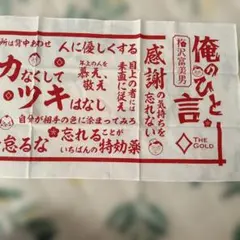 俺のひと言
梅沢富美男
THE GOLD
感謝の気持ちを忘れない
目上の者には素直に従え
年上の人を慕え、敬え
人に優しくする
所は背中あわせ
力なくして
ツキはなし
自分が相手の色に染まってみろ
忘れることが
いちばんの特効薬
怠るな